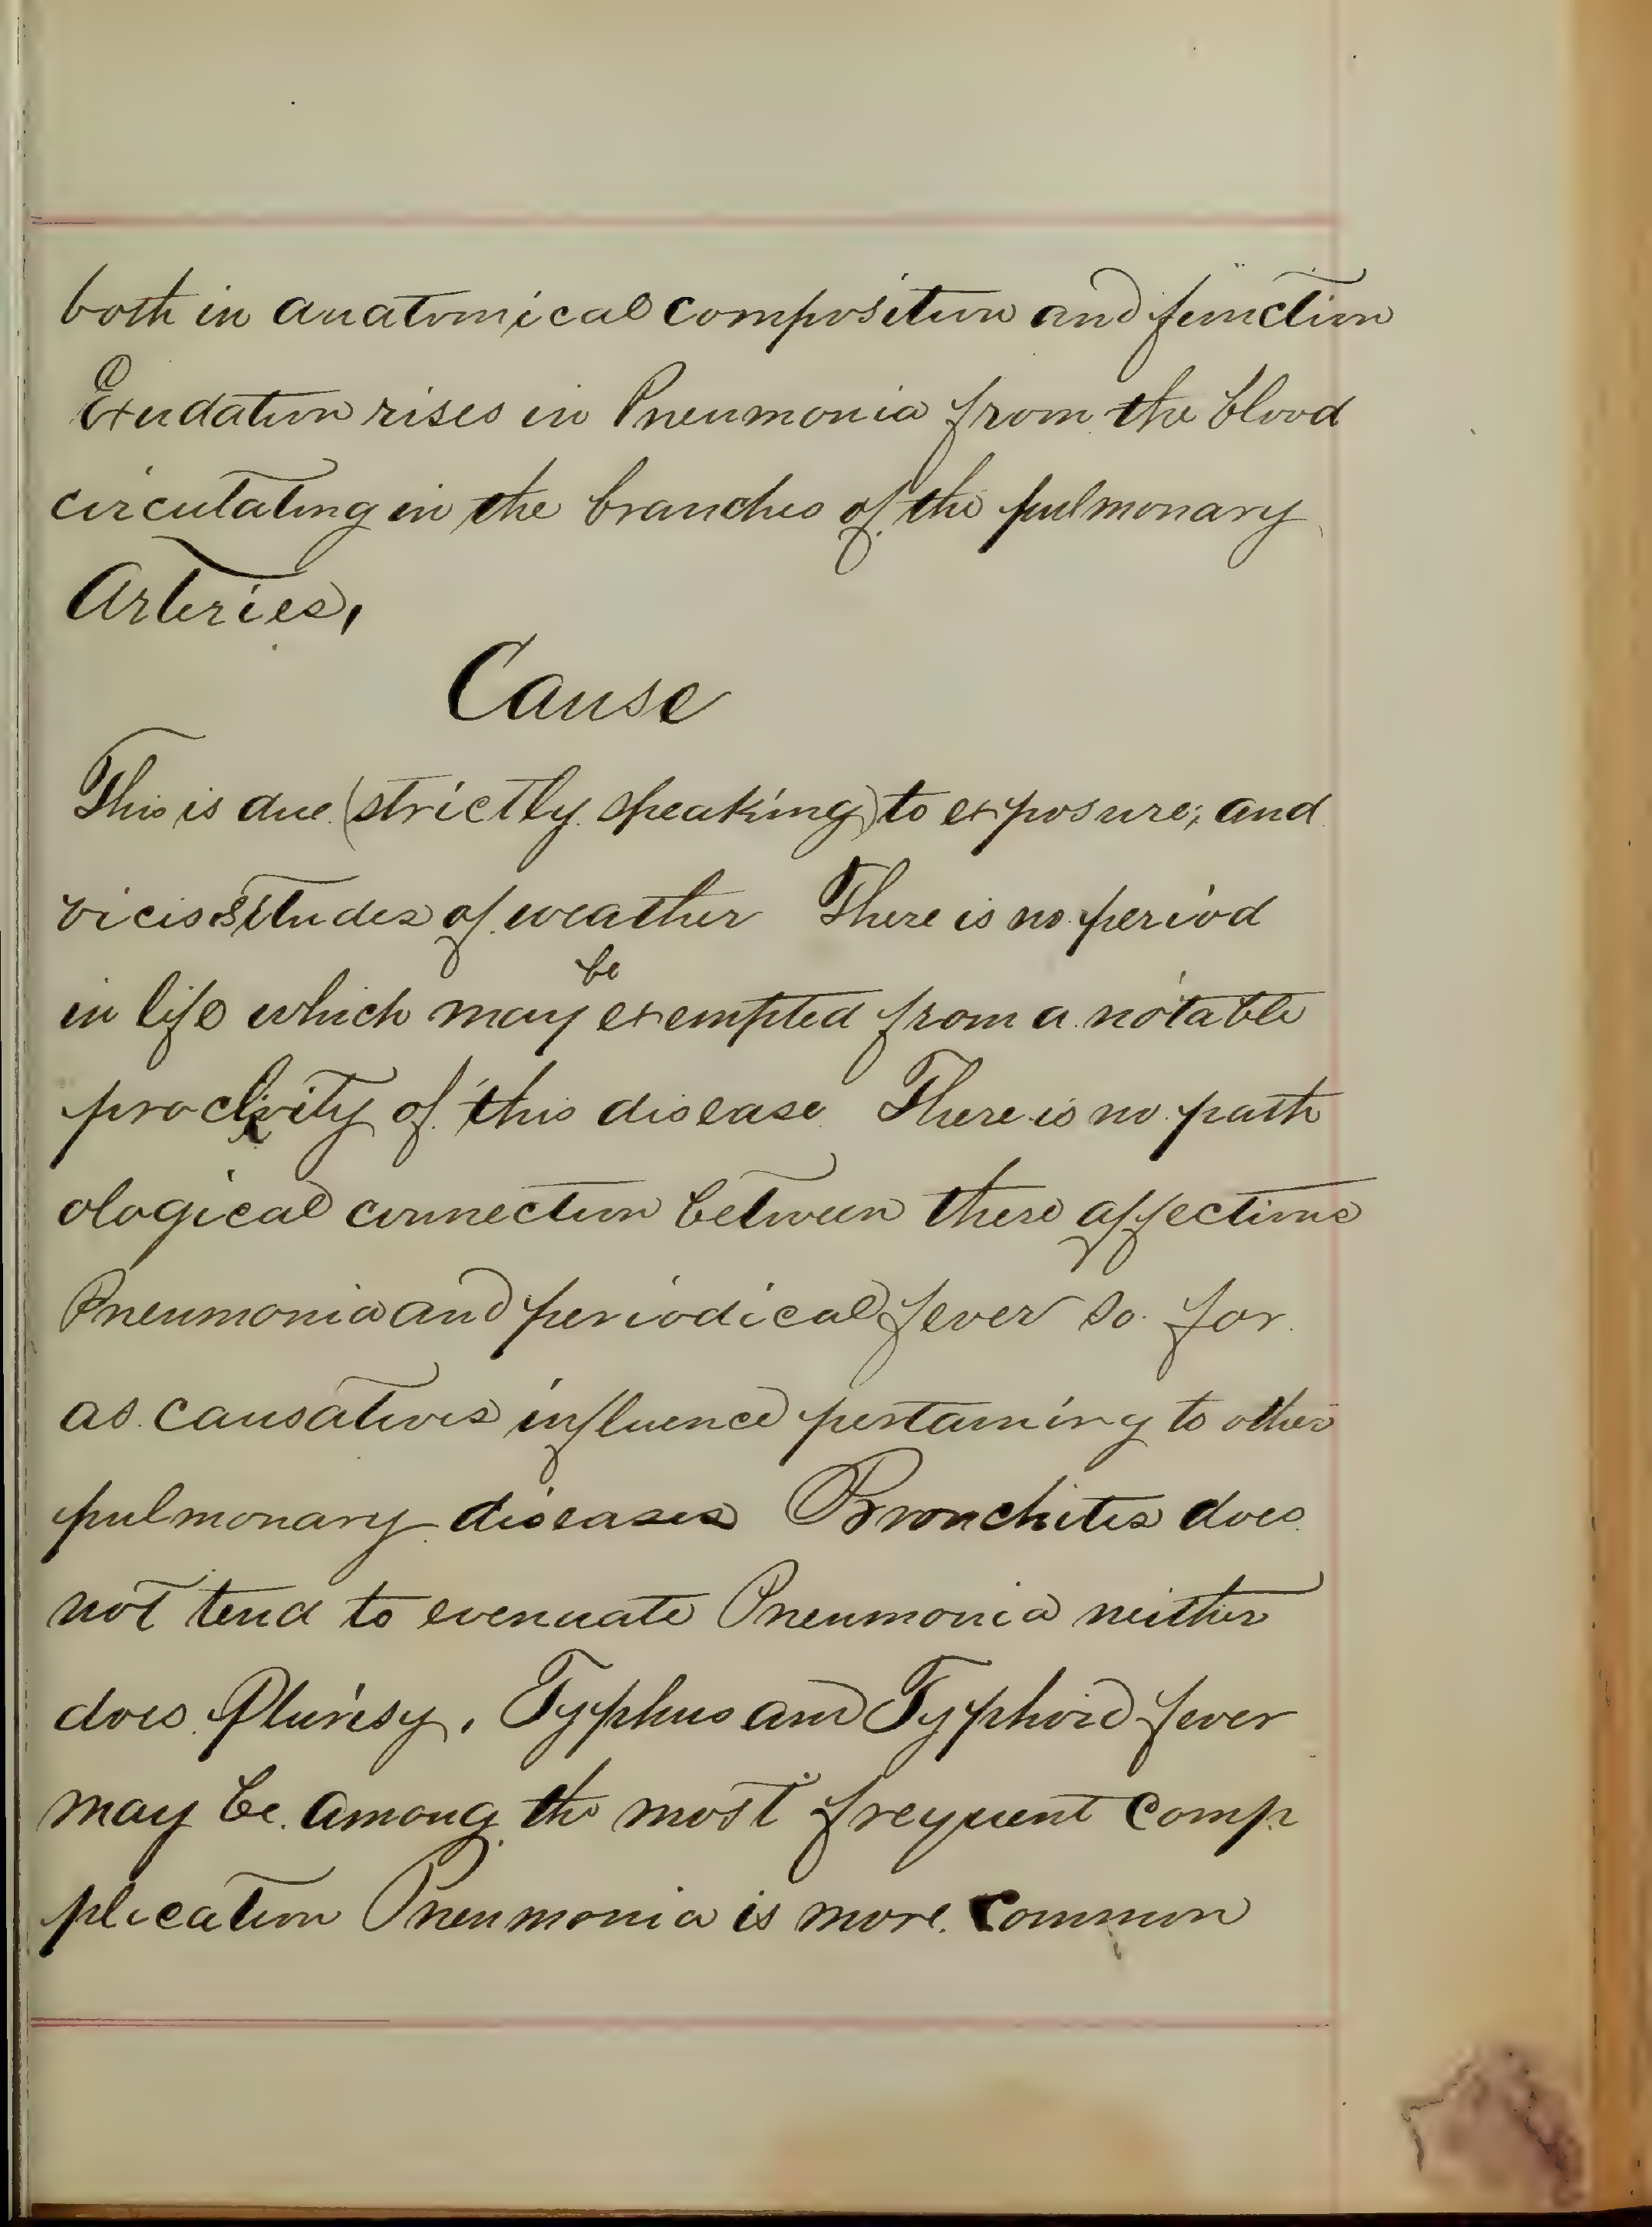 both in anatomical composition and function
Exudation rises in Pneumonia from the blood
circulating in the branches of the pulmonary
Arteries,
Cause
This is due (strictly speaking) to exposure; and
vicissitudes of weather There is no period
be
in life which may exempted from a notable
proclivity of this disease There is no path
ological connection between these affections
Pneumonia and periodical fever so far
as causatives influence pertaining to other
pulmonary diseases Bronchitis does
not tend to evenuate Pneumonia neither
does Plurisy, Typhus and Typhoid fever
may be among the most frequent comp
plication Pneumonia is more common